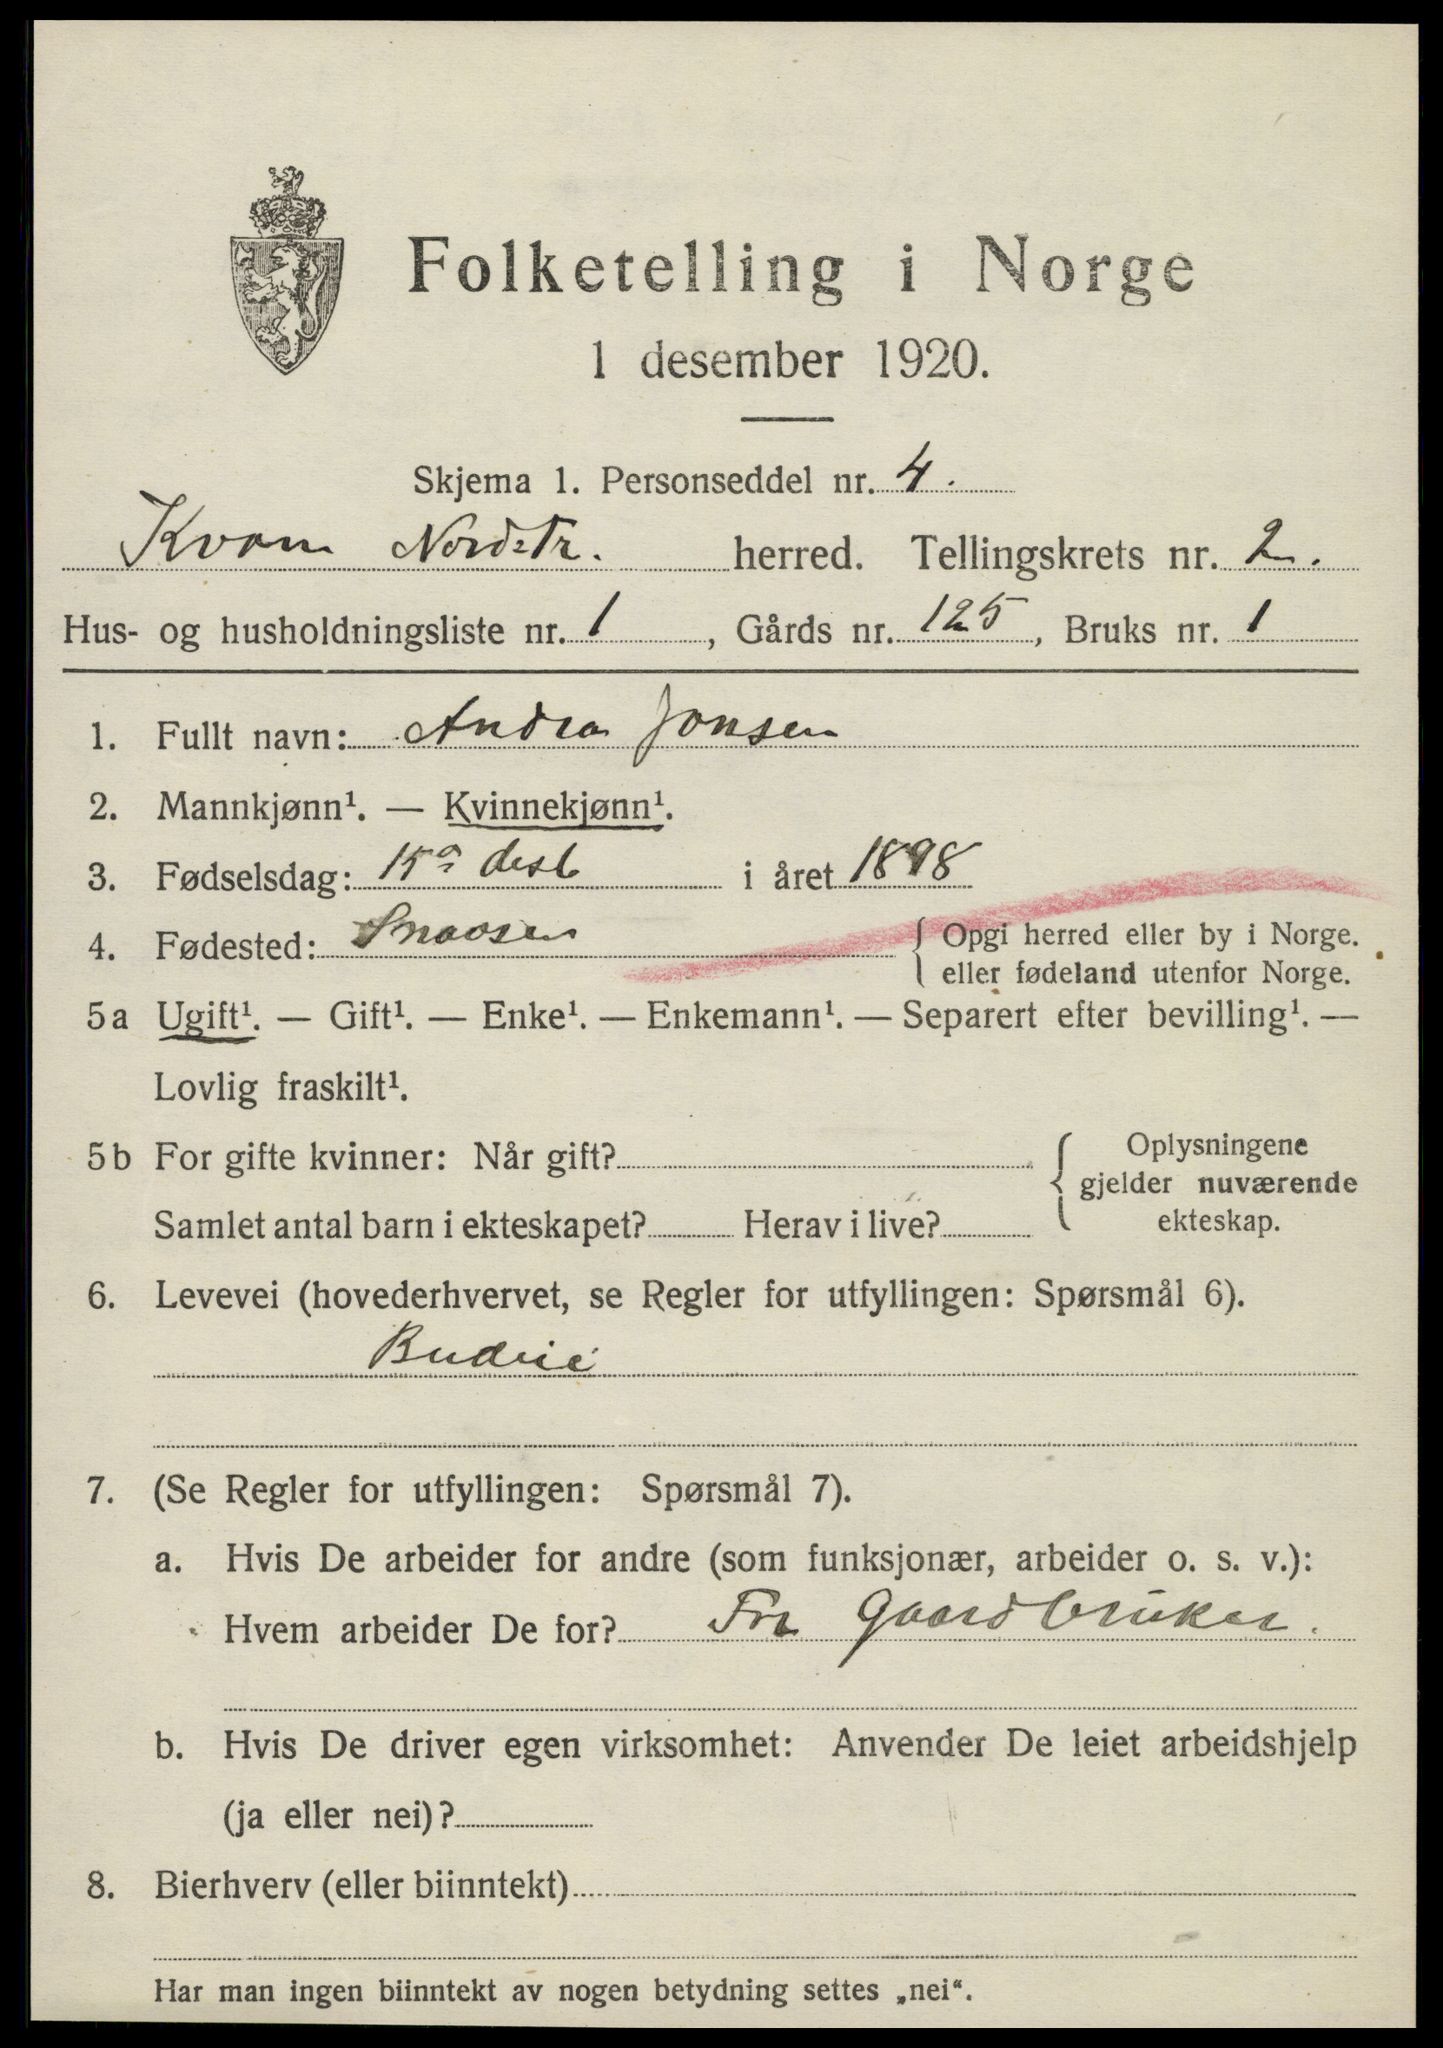 Folketelling i Norge
1 desember 1920.
Skjema 1. Personseddel nr. 4.
Kvam Nordstr. herred. Tellingskrets nr. 2.
Hus- og husholdningsliste nr. 1, Gårds nr. 125, Bruks nr. 1
1. Fullt navn: Andrea Jonsen
2. Mannkjønn¹. — Kvinnekjønn¹.
3. Fødselsdag: 15de desb i året 1898
4. Fødested: Snaasen { Opgi herred eller by i Norge.
eller fødeland utenfor Norge.
5a Ugift¹. — Gift¹. — Enke¹. — Enkemann¹. — Separert efter bevilling¹. —
Lovlig fraskilt¹.
5b For gifte kvinner: Når gift? { Oplysningene
gjelder nuværende
Samlet antal barn i ekteskapet? Herav i live? ekteskap.
6. Levevei (hovederhvervet, se Regler for utfyllingen: Spørsmål 6).
Budeie
7. (Se Regler for utfyllingen: Spørsmål 7).
a. Hvis De arbeider for andre (som funksjonær, arbeider o. s. v.):
Hvem arbeider De for? For Gaardbruker.
b. Hvis De driver egen virksomhet: Anvender De leiet arbeidshjelp
(ja eller nei)?
8. Bierhverv (eller biinntekt)
Har man ingen biinntekt av nogen betydning settes „nei“.